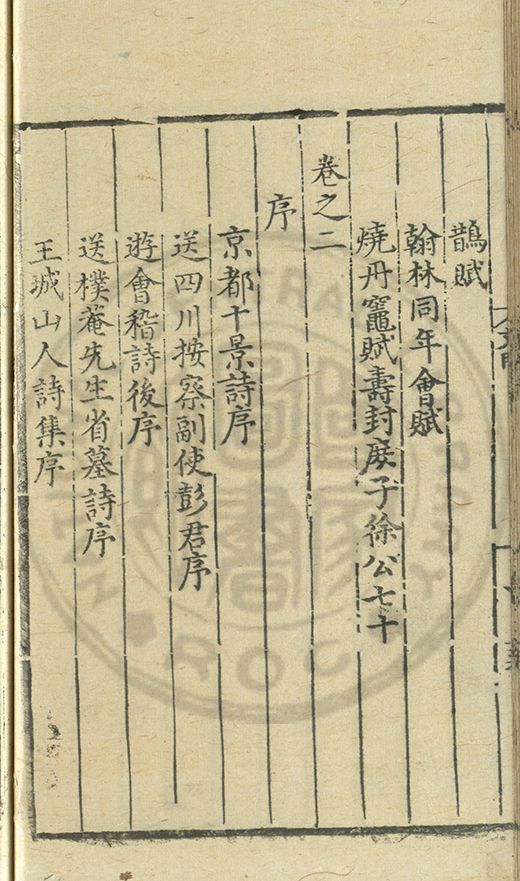 鵲賦
翰林同年會賦
燒丹竈賦壽封庚子徐公七十
卷之二
序
京都十景詩序
送四川按察副使彭君序
遊會稽詩後序
送樸菴先生省墓詩序
王城山人詩集序